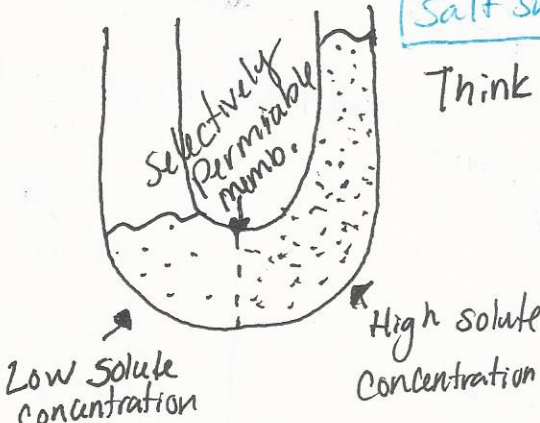 Salt
Think
Selectively
Permiable
memb.
High solute
Concentration
Low Solute
concentration